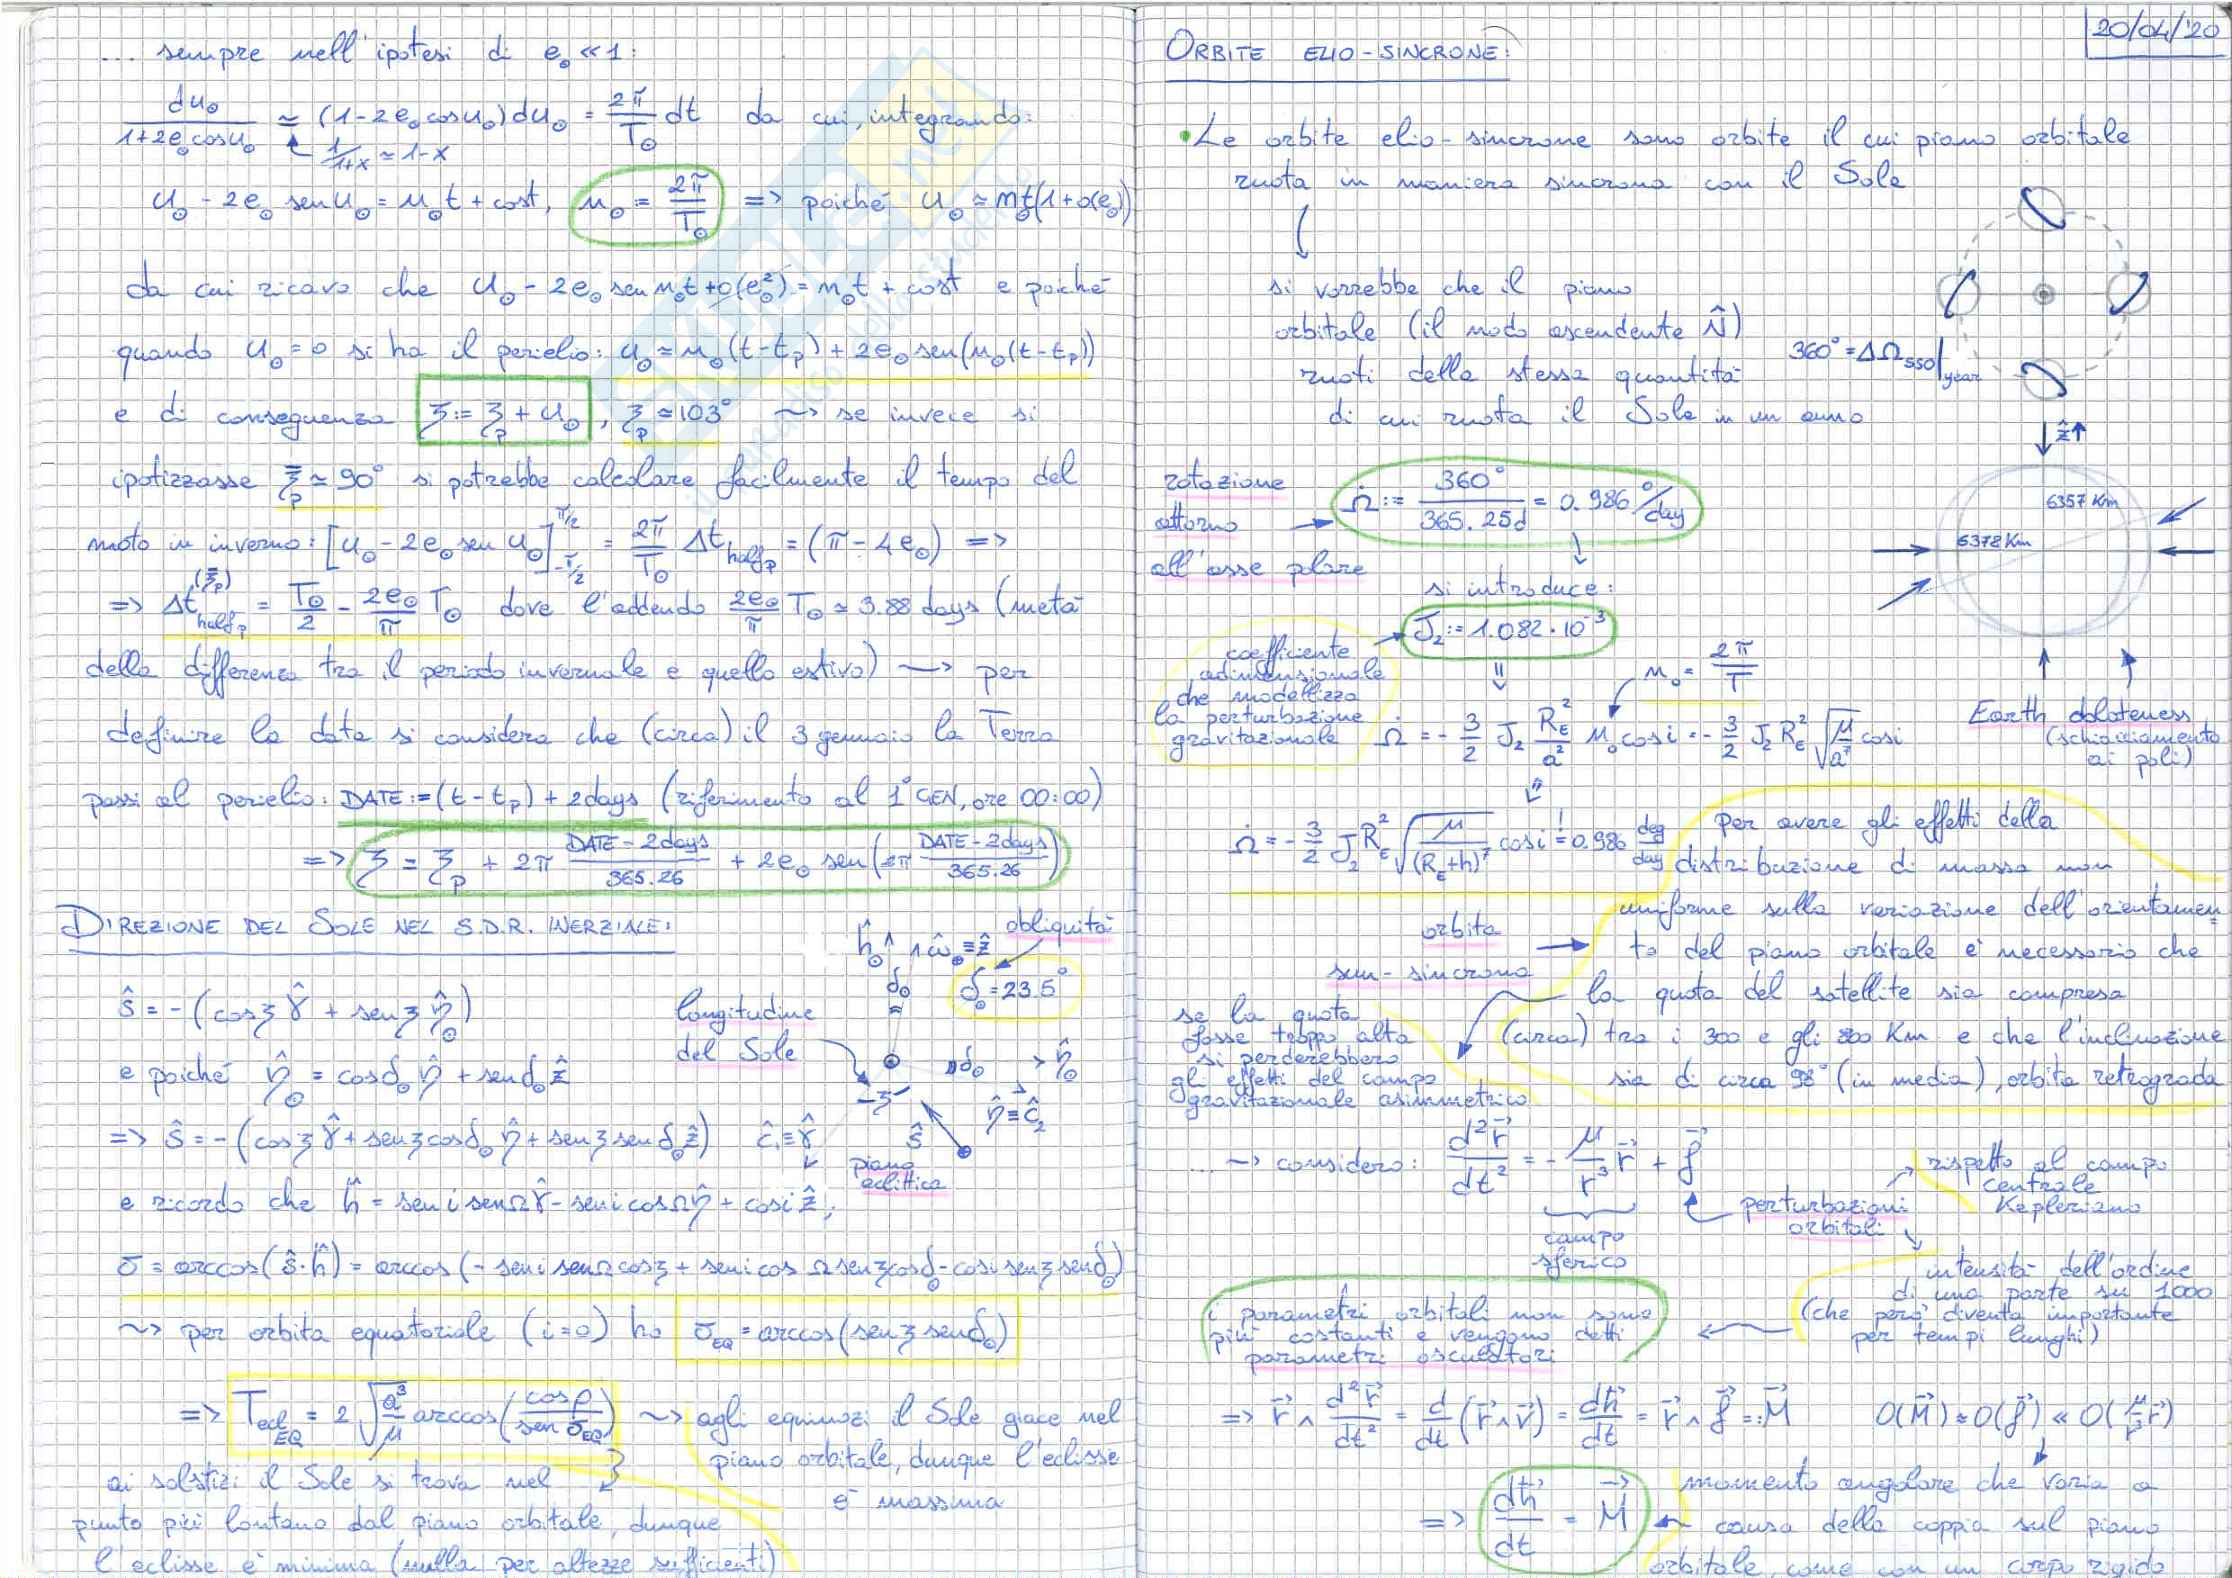 ... sempre nell'ipotesi di e⊙ << 1:
du⊙/(1+2e⊙cosu⊙) ≃ (1-2e⊙cosu⊙)du⊙ = 2π/T⊙ dt da cui, integrando:
1/(1+x) ≃ 1-x
u⊙ - 2e⊙ senu⊙ = n⊙t + cost, n⊙ := 2π/T⊙ => poiché u⊙ ≃ n⊙t(1+o(e⊙))
da cui ricavo che u⊙ - 2e⊙ senn⊙t + o(e⊙²) = n⊙t + cost e poiché
quando u⊙=0 si ha il perielio: u⊙ ≃ n⊙(t-tp) + 2e⊙ sen(n⊙(t-tp))
e di conseguenza ξ := ξp + u⊙, ξp ≃ 103° ~> se invece si
ipotizzasse ξ̄p ≃ 90° si potrebbe calcolare facilmente il tempo del
moto in inverno: [u⊙ - 2e⊙ sen u⊙]_{-π/2}^{π/2} = 2π/T⊙ Δt half p = (π - 4e⊙) =>
=> Δt half p (ξ̄p) = T⊙/2 - 2e⊙/π T⊙ dove l'addendo 2e⊙/π T⊙ ≃ 3.88 days (metà
della differenza tra il periodo invernale e quello estivo) —> per
definire la data si considera che (circa) il 3 gennaio la Terra
passi al perielio: DATE := (t-tp) + 2days (riferimento al 1° GEN, ore 00:00)
=> ξ = ξp + 2π (DATE-2days)/365.26 + 2e⊙ sen(2π (DATE-2days)/365.26)
DIREZIONE DEL SOLE NEL S.D.R. INERZIALE:
ĥ⊙ ω̂⊕≡ẑ obliquità
δ⊙ δ⊙=23.5°
ŝ = -(cosξ γ̂ + senξ η̂⊙)
longitudine
del Sole
e poiché η̂⊙ = cosδ⊙ η̂ + senδ⊙ ẑ
δ⊙ η̂⊙
ξ
η̂≡ĉ₂
=> ŝ = -(cosξ γ̂ + senξ cosδ⊙ η̂ + senξ senδ⊙ ẑ) ĉ₁≡γ̂ ŝ
piano
eclittica
e ricordo che ĥ = sen i senΩ γ̂ - sen i cosΩ η̂ + cos i ẑ;
σ = arccos(ŝ·ĥ) = arccos(-sen i senΩ cosξ + sen i cos Ω senξ cosδ⊙ - cos i senξ senδ⊙)
~> per orbita equatoriale (i=0) ho σEQ = arccos(senξ senδ⊙)
=> Tecl EQ = 2 √(a³/μ) arccos(cosρ/sen σEQ) ~> agli equinozi il Sole giace nel
piano orbitale, dunque l'eclisse
è massima
ai solstizi il Sole si trova nel
punto più lontano dal piano orbitale, dunque
l'eclisse è minima (nulla per altezze sufficienti)
20/04/'20
ORBITE ELIO-SINCRONE:
• Le orbite elio-sincrone sono orbite il cui piano orbitale
ruota in maniera sincrona con il Sole
si vorrebbe che il piano
orbitale (il nodo ascendente N̂)
ruoti della stessa quantità
di cui ruota il Sole in un anno
360° = ΔΩ SSO|year
ẑ
rotazione
attorno
all'asse polare
Ω̇ := 360°/365.25d = 0.986 °/day
6357 Km
6378 Km
si introduce:
J₂ := 1.082·10⁻³
coefficiente
adimensionale
che modellizza
la perturbazione
gravitazionale
n₀ = 2π/T
Ω̇ = -3/2 J₂ R_E²/a² n₀ cos i = -3/2 J₂ R_E² √(μ/a⁷) cosi
Earth oblateness
(schiacciamento
ai poli)
Ω̇ = -3/2 J₂ R_E² √(μ/(R_E+h)⁷) cosi =! 0.986 deg/day
per avere gli effetti della
distribuzione di massa non
uniforme sulla variazione dell'orientamen
to del piano orbitale è necessario che
la quota del satellite sia compresa
(circa) tra i 300 e gli 800 Km e che l'inclinazione
sia di circa 98° (in media), orbita retrograda
orbita
sun-sincrona
se la quota
fosse troppo alta
si perderebbero
gli effetti del campo
gravitazionale asimmetrico
... ~> considero: d²r⃗/dt² = -μ/r³ r⃗ + f⃗
campo
sferico
perturbazioni
orbitali
rispetto al campo
centrale
Kepleriano
intensità dell'ordine
di una parte su 1000
(che però diventa importante
per tempi lunghi)
i parametri orbitali non sono
più costanti e vengono detti
parametri osculatori
=> r⃗ ∧ d²r⃗/dt² = d/dt (r⃗∧v⃗) = dh⃗/dt = r⃗ ∧ f⃗ =: M⃗ O(M⃗) ≈ O(f⃗) << O(μ/r³ r⃗)
=> dh⃗/dt = M⃗
momento angolare che varia a
causa della coppia sul piano
orbitale, come con un corpo rigido